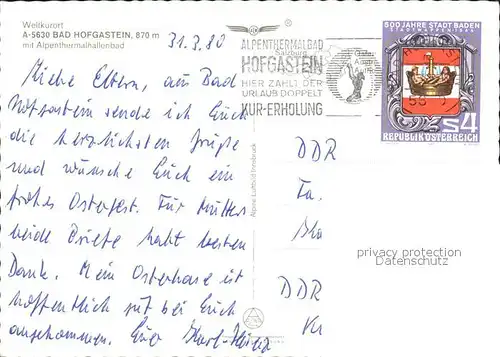 Weltkurort
A-5630 BAD HOFGASTEIN, 870 m
mit Alpenthermalhallenbad
31.3.80
ALPENTHERMALBAD
Salzburg
HOFGASTEIN
HIER ZÄHLT DER
URLAUB DOPPELT
KUR-ERHOLUNG
500 JAHRE STADT BADEN
STADTWAPPEN 1566
S4
REPUBLIK ÖSTERREICH
Liebe Eltern, aus Bad
Hofgastein sende ich Euch
die herzlichsten Grüße
und wünsche Euch ein
frohes Osterfest. Für Mutters
beide Briefe habt besten
Dank. Mein Osterhase ist
hoffentlich gut bei Euch
angekommen. Euer Karl-Heinz
Alpine Luftbild Innsbruck
DDR
Fa.
DDR
privacy protection
Datenschutz